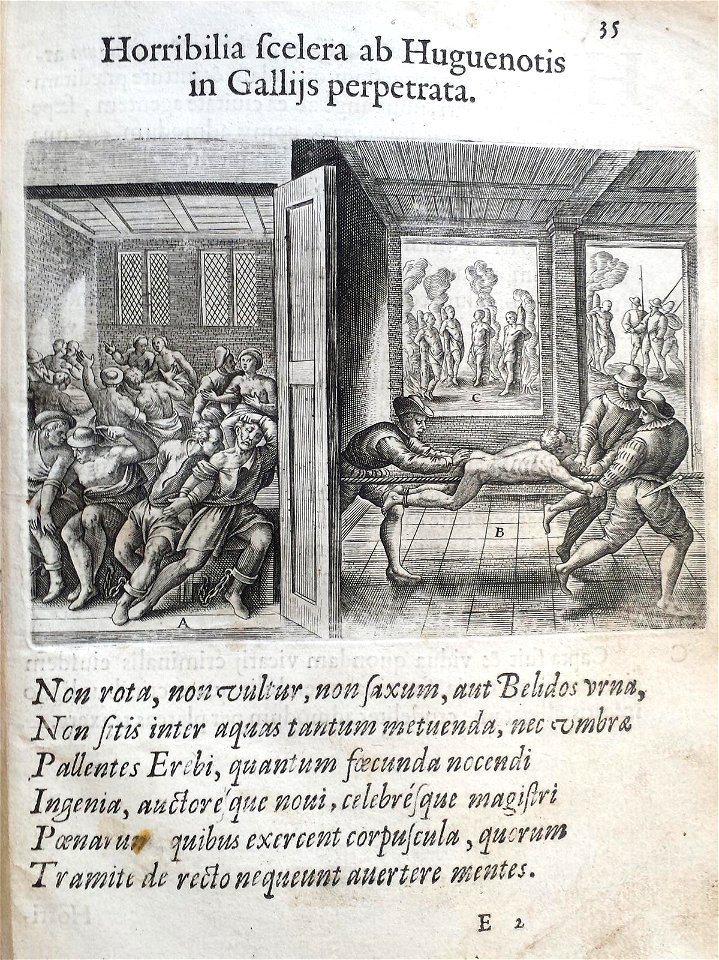 35
Horribilia ſcelera ab Huguenotis
in Gallijs perpetrata.
C
B
A
Non rota, non vultur, non ſaxum, aut Belidos vrna,
Non ſitis inter aquas tantum metuenda, nec vmbræ
Pallentes Erebi, quantum fœcunda nocendi
Ingenia, auctoréſque noui, celebréſque magiſtri
Pœnarum quibus exercent corpuſcula, quorum
Tramite de recto nequeunt auertere mentes.
E 2